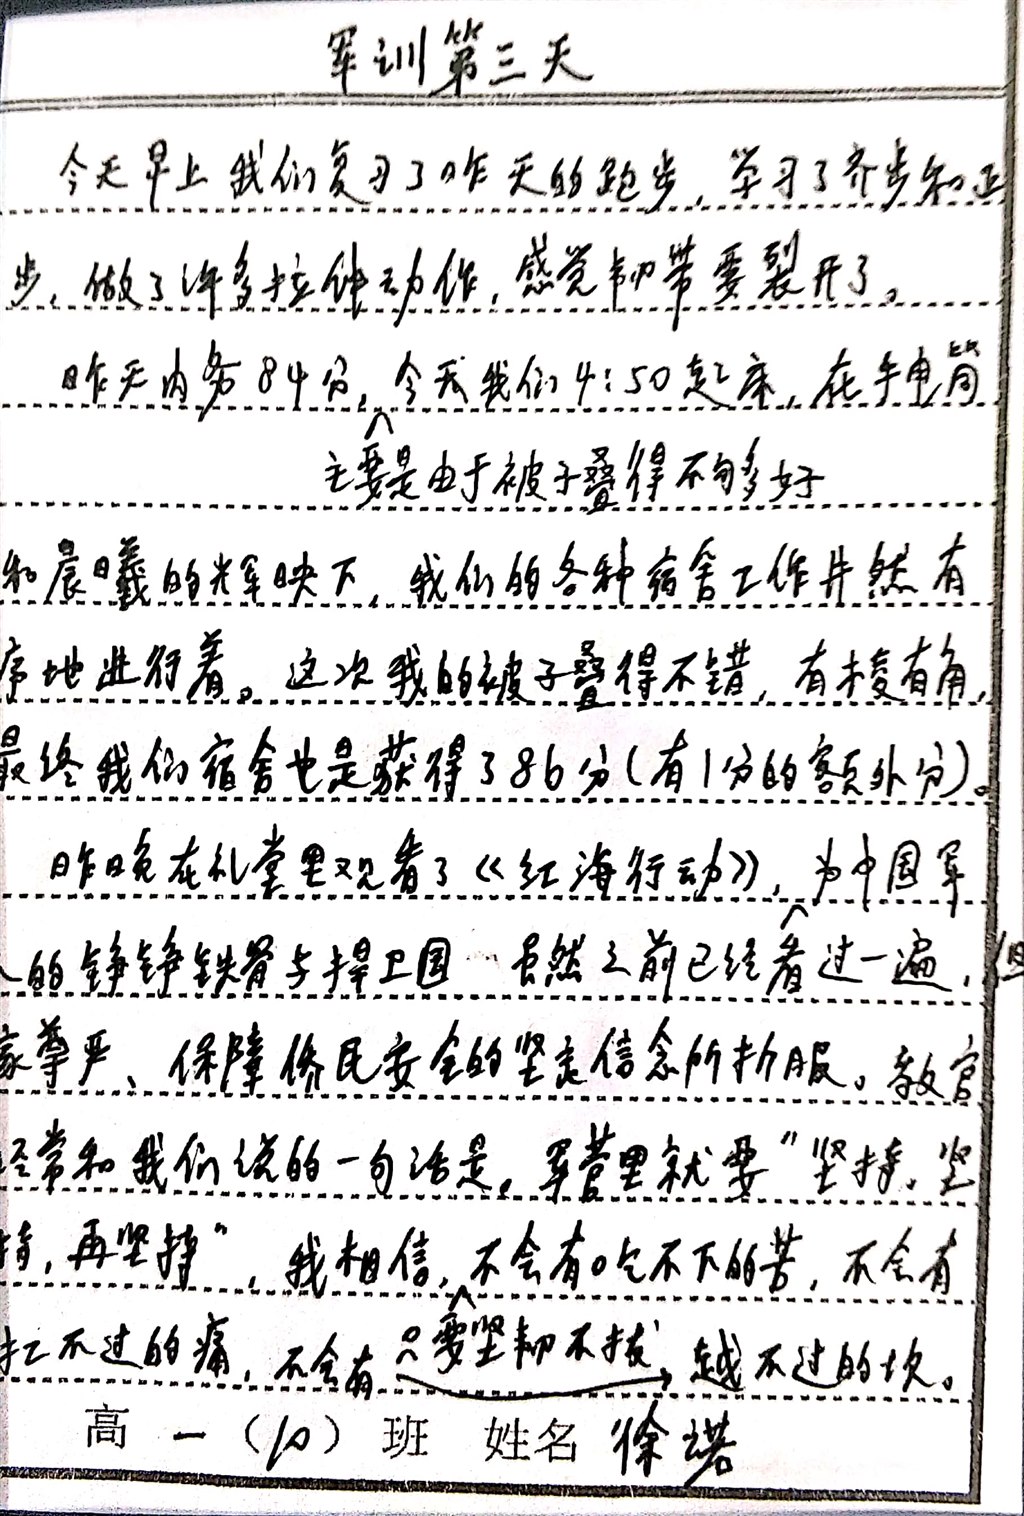 军训第三天
今天早上我们复习了昨天的跑步,学习了齐步和正
步,做了许多拉伸动作,感觉韧带要裂开了。
昨天内务84分,今天我们4:50起床,在手电筒
主要是由于被子叠得不够多好
和晨曦的光辉映下,我们的各种宿舍工作井然有
序地进行着。这次我的被子叠得不错,有棱有角,
最终我们宿舍也是获得了86分(有1分的额外分)。
昨晚在礼堂里观看了《红海行动》,为中国军
人的铮铮铁骨与捍卫国 虽然之前已经看过一遍,但
家尊严、保障侨民安全的坚定信念所折服。教官
经常和我们说的一句话是,军营里就要"坚持,坚
持,再坚持",我相信,不会有吃不下的苦,不会有
扛不过的痛,不会有 只要坚韧不拔 越不过的坎。
高一(10)班 姓名 徐诺